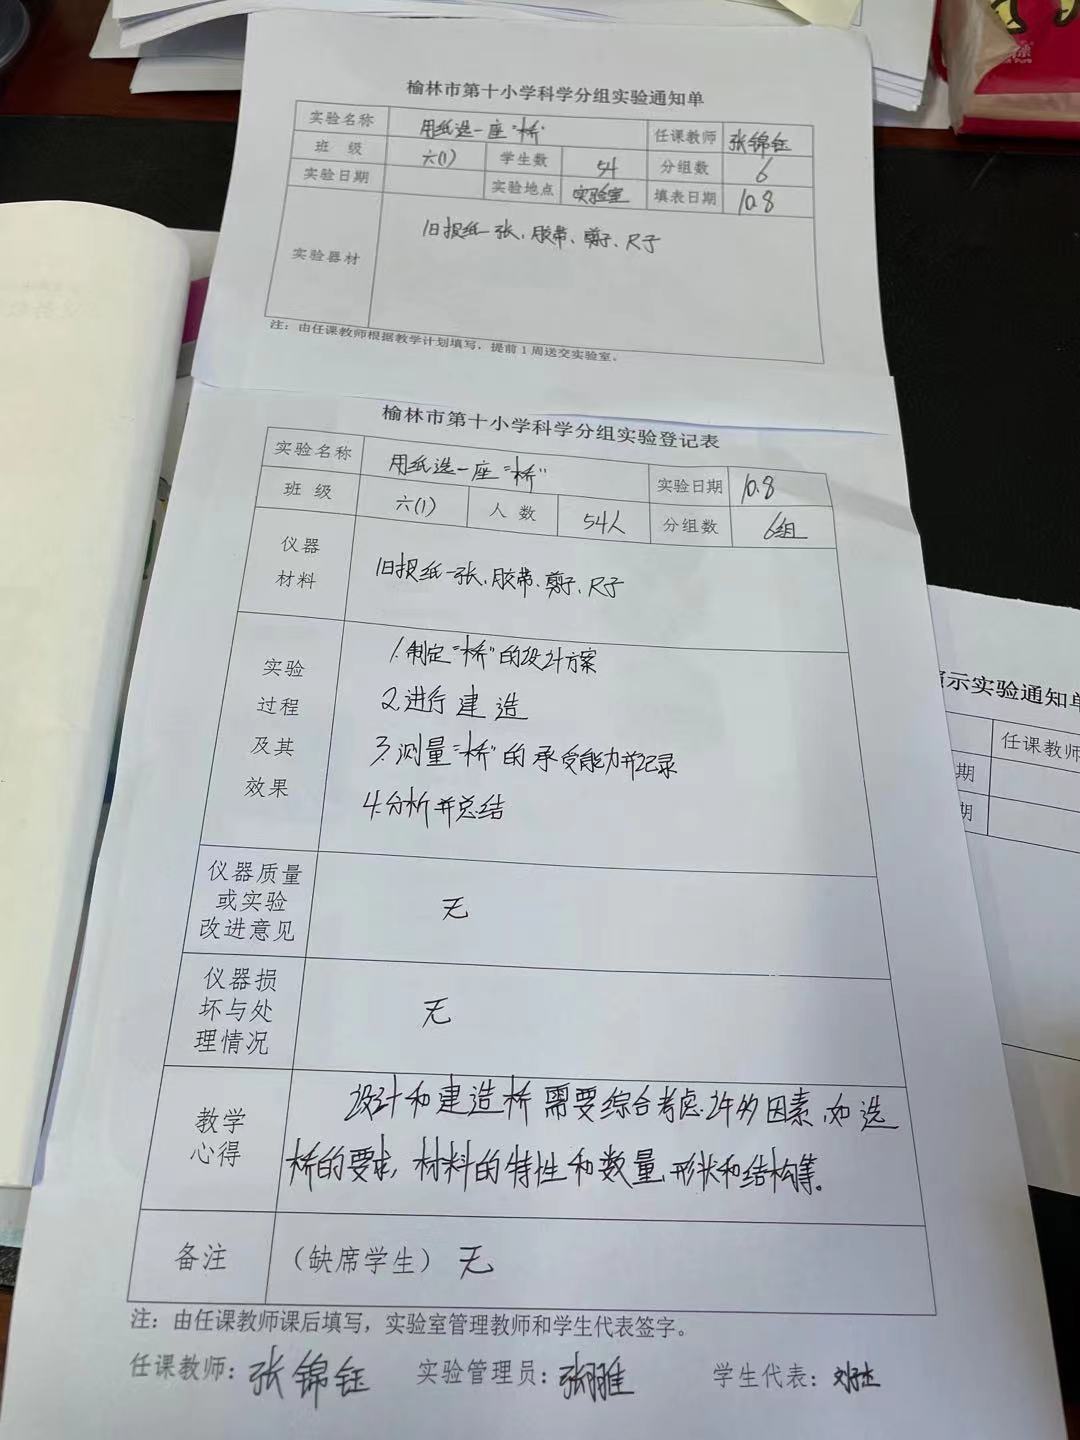 榆林市第十小学科学分组实验通知单
实验名称 用纸造一座“桥” 任课教师 张锦钰
班 级 六(1) 学生数 54 分组数 6
实验日期 实验地点 实验室 填表日期 10.8
实验器材 旧报纸一张、胶带、剪子、尺子
注：由任课教师根据教学计划填写，提前1周送交实验室。
榆林市第十小学科学分组实验登记表
实验名称 用纸造一座“桥” 实验日期 10.8
班 级 六(1) 人 数 54人 分组数 6组
仪器
材料
旧报纸一张、胶带、剪子、尺子
实验
过程
及其
效果
1.制定“桥”的设计方案
2.进行建造
3.测量“桥”的承受能力并记录
4.分析并总结
仪器质量
或实验
改进意见
无
仪器损
坏与处
理情况
无
教学
心得
设计和建造桥需要综合考虑许多因素,如造
桥的要求,材料的特性和数量,形状和结构等。
备注 （缺席学生）无
注：由任课教师课后填写，实验室管理教师和学生代表签字。
任课教师：张锦钰 实验管理员： 学生代表：
示实验通知单
任课教师
期
期